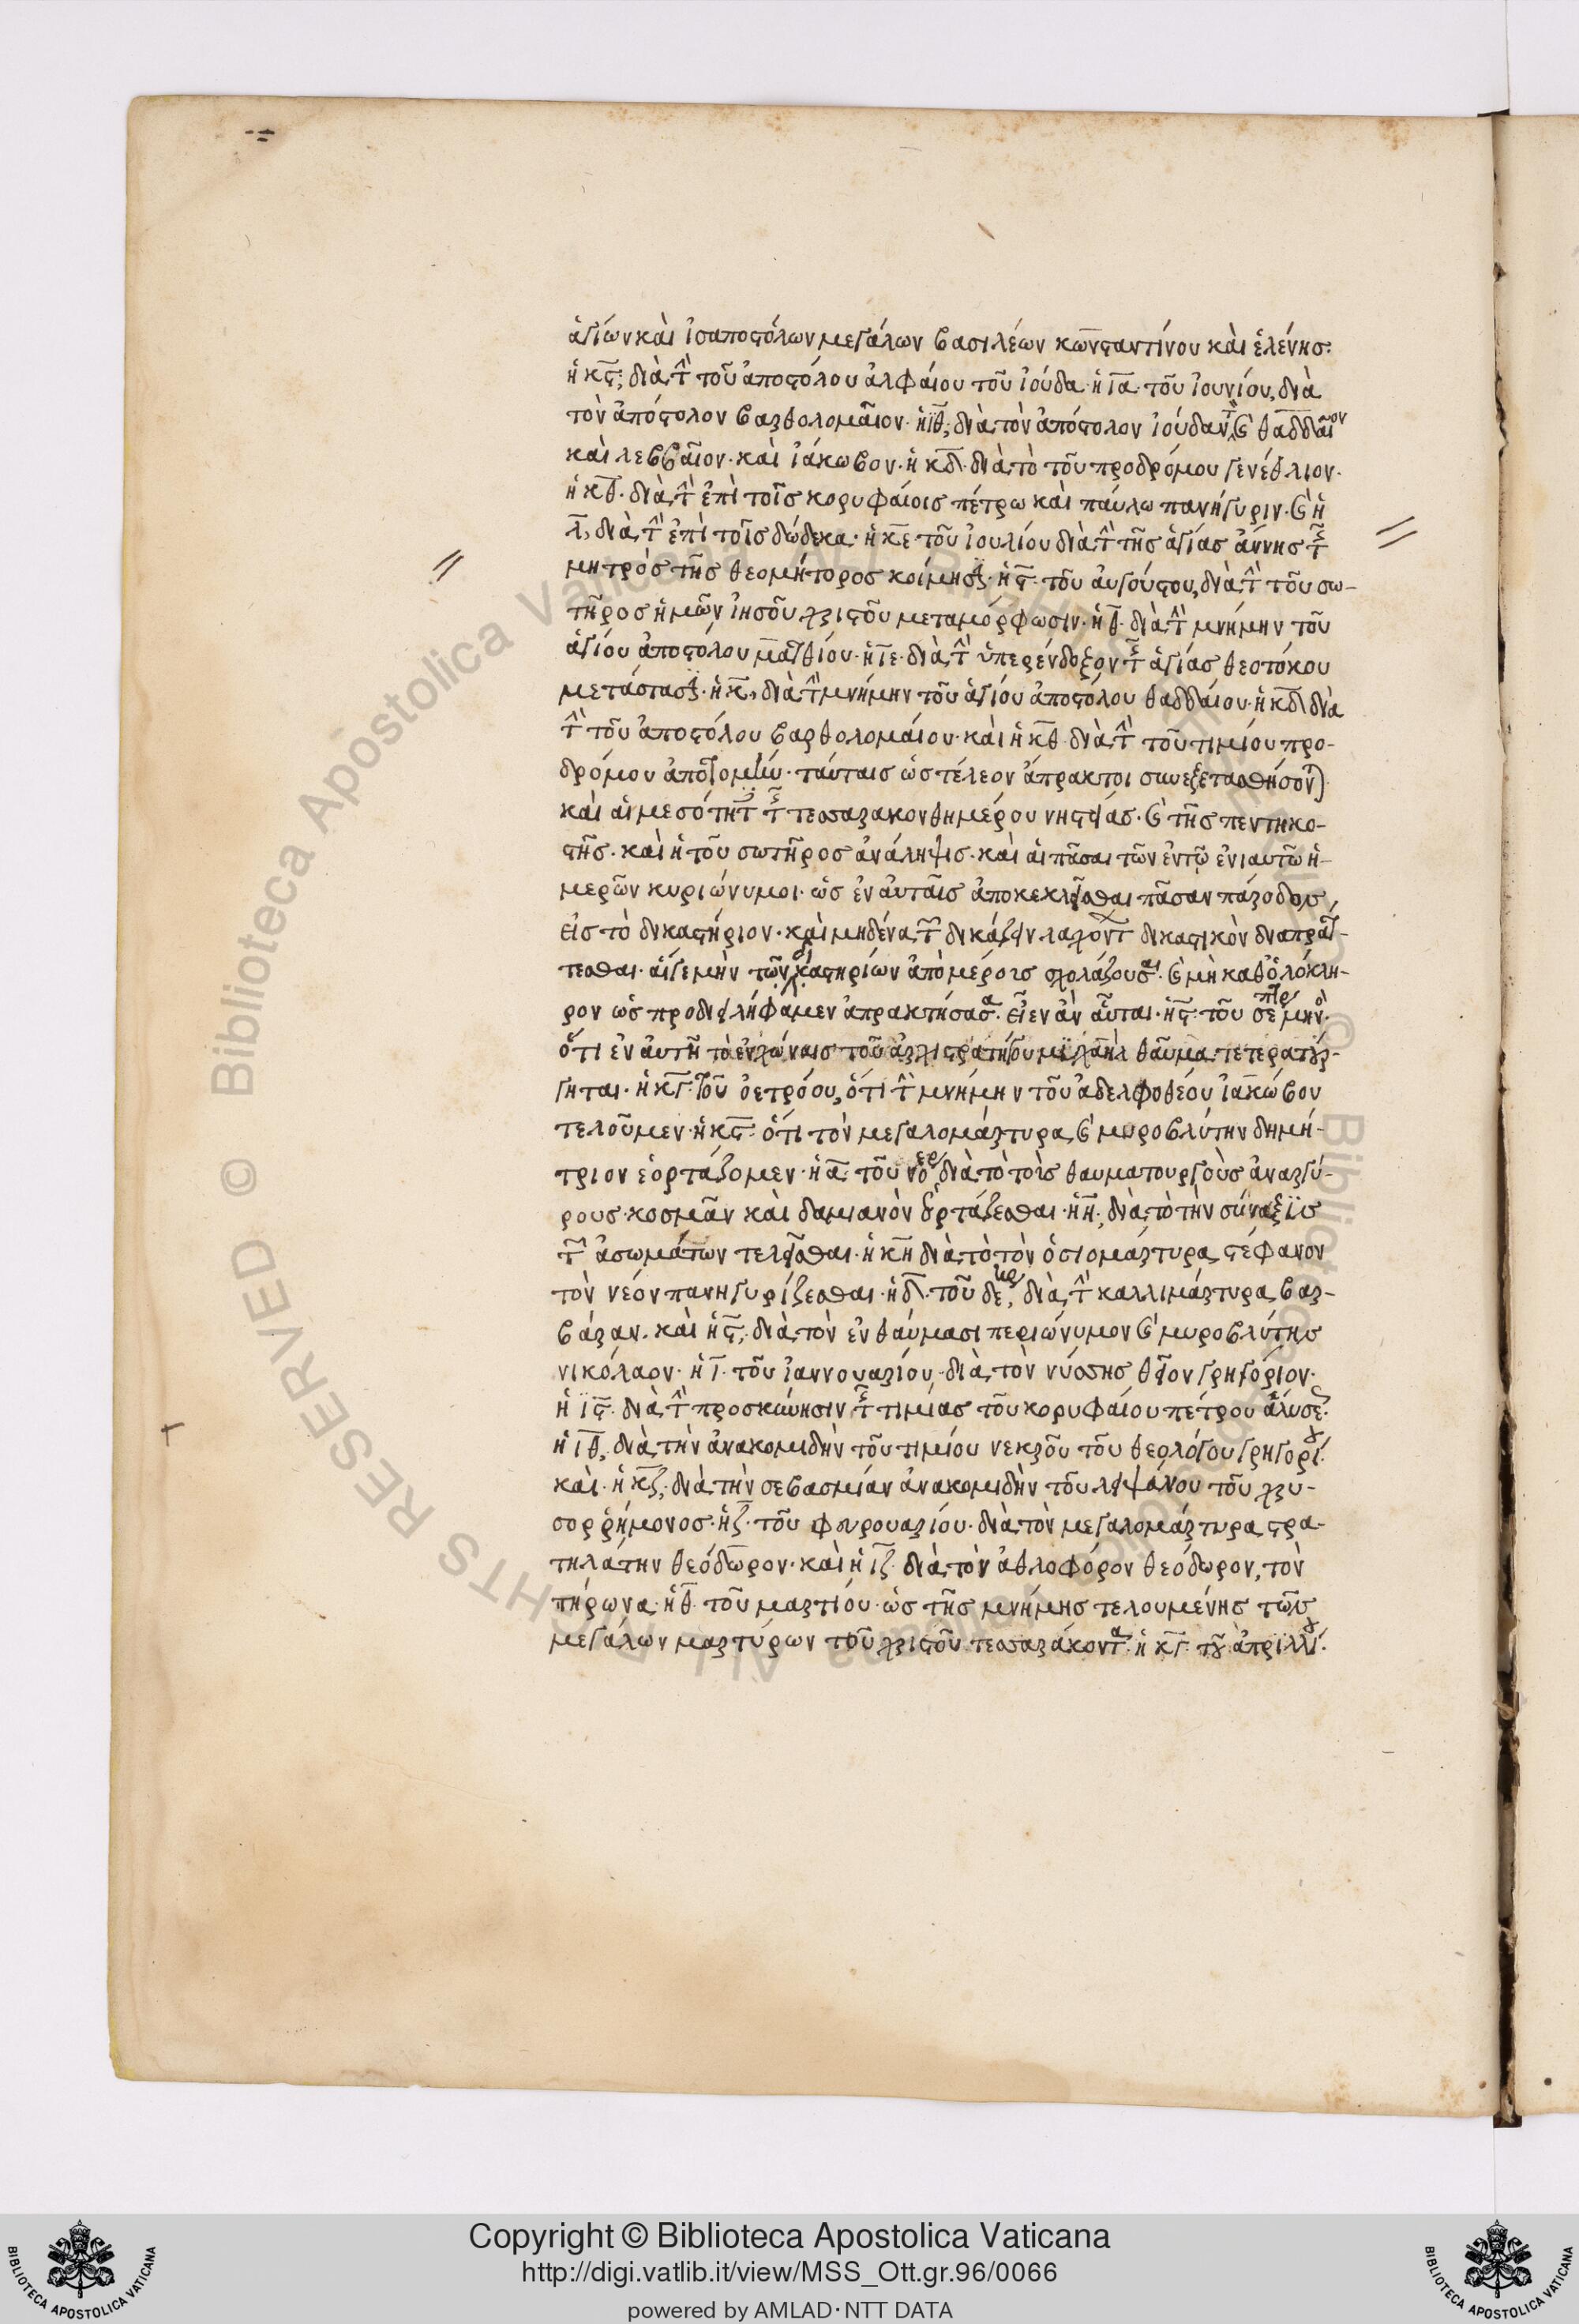 ἁγίων καὶ ἰσαποστόλων μεγάλων βασιλέων κωνσταντίνου καὶ ἑλένησ·
ἡ κϛ, διὰ τὴν τοῦ ἀποστόλου ἀλφαίου τοῦ ἰούδα· ἡ ια· τοῦ ἰουνίου, διὰ
τὸν ἀπόστολον βαρθολομαῖον· ἡ ιθ, διὰ τὸν ἀπόστολον ἰούδαν, καὶ θαδδαῖον
καὶ λεββαῖον· καὶ ἰάκωβον· ἡ κδ· διὰ τὸ τοῦ προδρόμου γενέθλιον·
ἡ κθ· διὰ τὴν ἐπὶ τοῖσ κορυφαίοισ πέτρω καὶ παύλω πανήγυριν· καὶ ἡ
λ, διὰ τὴν ἐπὶ τοῖσ δώδεκα· ἡ κε τοῦ ἰουλίου διὰ τὴν τῆσ ἁγίασ ἄννησ τῆσ
μητρὸσ τῆσ θεομήτοροσ κοίμησιν· ἡ ϛ· τοῦ αὐγούστου, διὰ τὴν τοῦ σω-
τῆροσ ἡμῶν ἰησοῦ χριστοῦ μεταμόρφωσιν· ἡ θ· διὰ τὴν μνήμην τοῦ
ἁγίου ἀποστόλου ματθίου· ἡ ιε· διὰ τὴν ὑπερένδοξον τῆσ ἁγίασ θεοτόκου
μετάστασιν· ἡ κ, διὰ τὴν μνήμην τοῦ ἁγίου ἀποστόλου θαδδαίου· ἡ κδ διὰ
τὴν τοῦ ἀποστόλου βαρθολομαίου· καὶ ἡ κθ· διὰ τὴν τοῦ τιμίου προ-
δρόμου ἀποτομήν· ταύταισ ὡσ τέλεον ἄπρακτοι συνεξετασθήσονται
καὶ αἱ μεσότητεσ τῆσ τεσσαρακονθημέρου νηστείασ· καὶ τῆσ πεντηκο-
στῆσ· καὶ ἡ τοῦ σωτῆροσ ἀνάληψισ· καὶ αἱ πᾶσαι τῶν ἐν τῷ ἐνιαυτῶ ἡ-
μερῶν κυριώνυμοι· ὡσ ἐν αὐταῖσ ἀποκεκλεῖσθαι πᾶσαν πάροδον,
εἰσ τὸ δικαστήριον· καὶ μηδένα τῶν δικάζειν λαχόντων δικαστικὸν διαπράτ-
τεσθαι· αἵγε μὴν τῶν δικαστηρίων ἀπὸ μέρουσ σχολάζουσαι· καὶ μὴ καθ' ὁλόκλη-
ρον ὡσ προδιειλήφαμεν ἀπρακτήσασαι· εἶεν ἂν αὗται· ἡ ϛ· τοῦ σεπτεμβρίου μηνὸσ·
ὅτι ἐν αὐτῆ τὸ ἐν χώναισ τοῦ ἀρχιστρατήγου μιχαὴλ θαῦμα τετερατούρ-
γηται· ἡ κγ· τοῦ ὀκτωβρίου, ὅτι τὴν μνήμην τοῦ ἀδελφοθέου ἰακώβου
τελοῦμεν· ἡ κϛ· ὅτι τὸν μεγαλομάρτυρα καὶ μυροβλύτην δημή-
τριον ἑορτάζομεν· ἡ α· τοῦ νοεμβρίου, διὰ τὸ τοὺσ θαυματουργοὺσ ἀναργύ-
ρουσ· κοσμᾶν καὶ δαμιανὸν ἑορτάζεσθαι· ἡ η, διὰ τὸ τὴν σύναξιν
τῶν ἀσωμάτων τελεῖσθαι· ἡ κη διὰ τὸ τὸν ὁσιομάρτυρα στέφανον
τὸν νέον πανηγυρίζεσθαι· ἡ δ· τοῦ δεκεμβρίου, διὰ τὴν καλλιμάρτυρα βαρ-
βάραν· καὶ ἡ ϛ, διὰ τὸν ἐν θαύμασι περιώνυμον καὶ μυροβλύτην
νικόλαον· ἡ ι· τοῦ ἰαννουαρίου, διὰ τὸν νύσσησ θεῖον γρηγόριον·
ἡ ιϛ· διὰ τὴν προσκύνησιν τῆσ τιμίασ τοῦ κορυφαίου πέτρου ἁλύσεωσ·
ἡ ιθ, διὰ τὴν ἀνακομιδὴν τοῦ τιμίου νεκροῦ τοῦ θεολόγου γρηγορίου·
καὶ· ἡ κζ, διὰ τὴν σεβασμίαν ἀνακομιδὴν τοῦ λειψάνου τοῦ χρυ-
σορρήμονοσ· ἡ ζ· τοῦ φευρουαρίου· διὰ τὸν μεγαλομάρτυρα στρα-
τηλάτην θεόδωρον· καὶ ἡ ιζ· διὰ τὸν ἀθλοφόρον θεόδωρον, τὸν
τήρωνα· ἡ θ· τοῦ μαρτίου· ὡσ τῆσ μνήμησ τελουμένησ τῶν
μεγάλων μαρτύρων τοῦ χριστοῦ τεσσαράκοντα· ἡ κγ· τοῦ ἀπριλλίου·
Copyright © Biblioteca Apostolica Vaticana
http://digi.vatlib.it/view/MSS_Ott.gr.96/0066
powered by AMLAD·NTT DATA